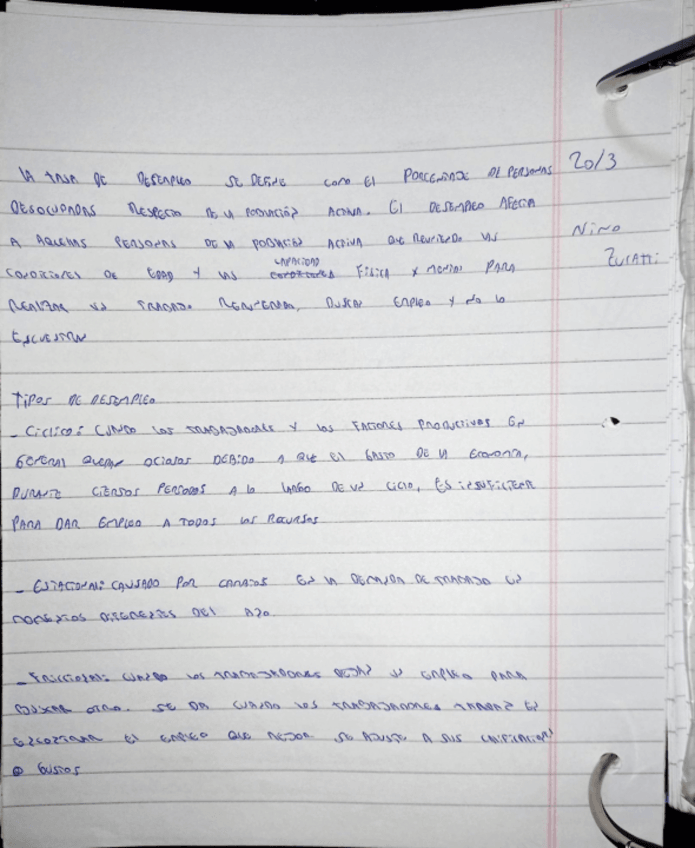 LA TASA DE DESEMPLEO SE DEFINE COMO EL PORCENTAJE DE PERSONAS 20/3
DESOCUPADAS RESPECTO DE LA POBLACIÓN ACTIVA. El DESEMPLEO AFECTA
A AQUELLAS PERSONAS DE LA POBLACIÓN ACTIVA QUE REUNIENDO LAS Nino
CONDICIONES DE EDAD Y LAS CAPACIDAD FISICA Y MENTAL PARA Zuratti
REALIZAR UN TRABAJO REMUNERADO, BUSCAN EMPLEO Y NO LO
ENCUENTRAN
TIPOS DE DESEMPLEO
- Ciclico: CUANDO LOS TRABAJADORES Y LOS FACTORES PRODUCTIVOS EN
GENERAL QUEDAN OCIOSOS DEBIDO A QUE EL GASTO DE LA ECONOMIA,
DURANTE CIERTOS PERIODOS A lo LARGO DE UN CICLO, ES INSUFICIENTE
PARA DAR EMPLEO A TODOS LOS RECURSOS
- ESTACIONAL: CAUSADO POR CAMBIOS EN LA DEMANDA DE TRABAJO EN
MOMENTOS DIFERENTES DEL AÑO.
- FRICCIONAL: CUANDO LOS TRABAJADORES DEJAN SU EMPLEO PARA
BUSCAR OTRO. SE DA CUANDO LOS TRABAJADORES TARDAN EN
ENCONTRAR EL EMPLEO QUE MEJOR SE AJUSTE A SUS
O GUSTOS